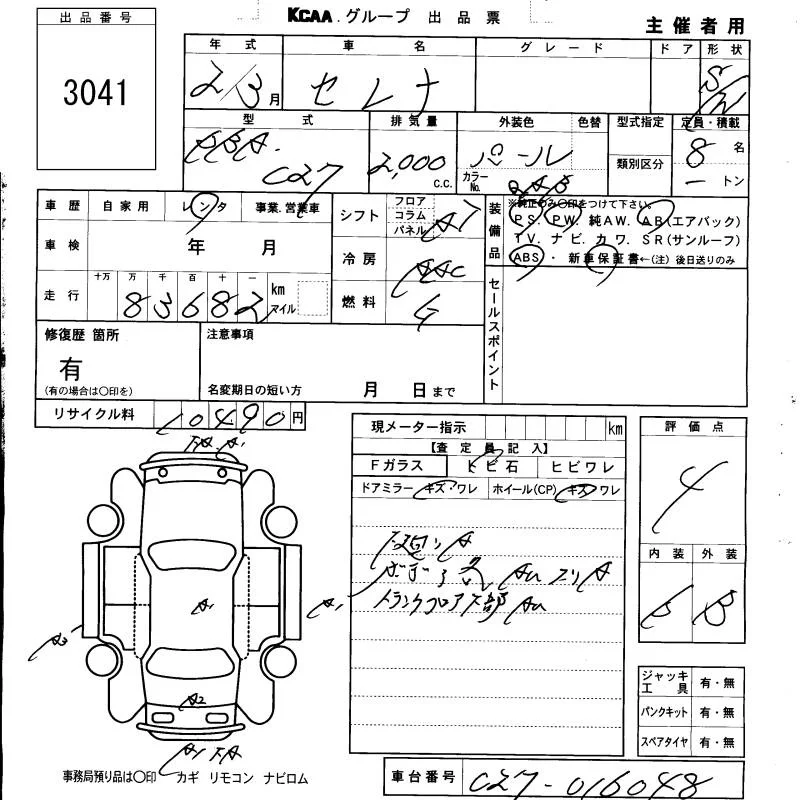 KCAA.グループ 出品票
主催者用
出品番号
3041
年式 車名 グレード ドア 形状
2/3月 セレナ S/W
型式 排気量 外装色 色替 型式指定 定員・積載
DBA- C27 2,000 C.C. パール カラーNo. 類別区分 8名
ートン
車歴 自家用 レンタ 事業.営業車
シフト フロア コラム パネル AT
装備品 ※純正のみ〇印をつけて下さい。
PS. PW. 純AW. AB(エアバック)
TV. ナビ. カワ. SR(サンルーフ)
ABS・ 新車保証書←(注) 後日送りのみ
車検 年 月
冷房 AAC
走行 十万 万 千 百 十 一
83682 km マイル
燃料 G
セールスポイント
修復歴 箇所
有
(有の場合は〇印を)
注意事項
名変期日の短い方 月 日まで
リサイクル料 10490円
現メーター指示 km
【査定員記入】
Fガラス トビ石 ヒビワレ
ドアミラー キズ・ワレ ホイール(CP) キズ・ワレ
評価点
4
内装 外装
B B
下廻りA
トランクフロア下部 AU
A1
A1
A1
A3
A2
A1
ジャッキ工具 有・無
パンクキット 有・無
スペアタイヤ 有・無
事務局預り品は〇印 カギ リモコン ナビロム
車台番号 C27-016048